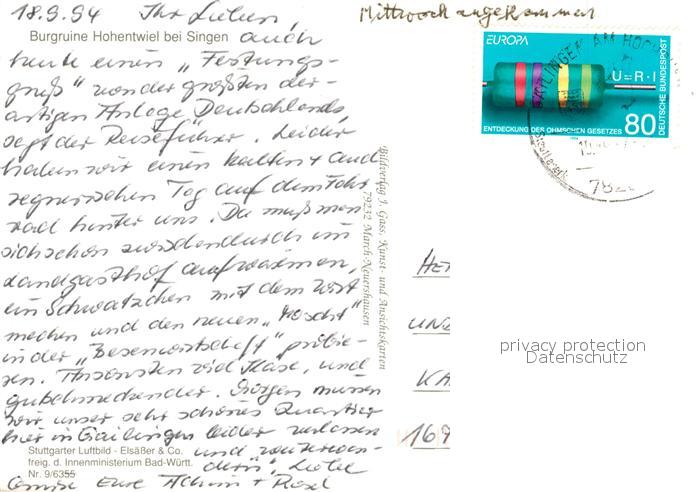 18.9.94 Ihr Lieben,
Mittwoch angekommen
Burgruine Hohentwiel bei Singen auch
heute einen „Festungs-
gruß" von der größten der-
artigen Anlage Deutschlands,
sagt der Reiseführer. Leider
haben wir einen kalten + und
regnerischen Tag auf dem Fahr
rad hinter uns. Da muß man
sich schon zwischendurch im
Landgasthof aufwärmen,
ein Schwätzchen mit dem Wirt
machen und den neuen „Moscht"
in der „Besenwirtschaft" probie-
ren. Ansonsten viel Käse, und
gutschmeckender. Morgen müssen
wir unser sehr schönes Quartier
hier in Gailingen leider verlassen
Stuttgarter Luftbild - Elsäßer & Co. und weiterwan-
freig. d. Innenministerium Bad-Württ. dern. Liebe
Nr. 9/6355
Grüße Eure Achim + Rosel
Bildverlag J. Gass, Kunst- und Ansichtskarten
79232 March-Neuershausen
EUROPA
U=R·I
80
DEUTSCHE BUNDESPOST
ENTDECKUNG DES OHMSCHEN GESETZES
1994
GAILINGEN AM HOCH
782
HE
UN
KA
169
privacy protection
Datenschutz